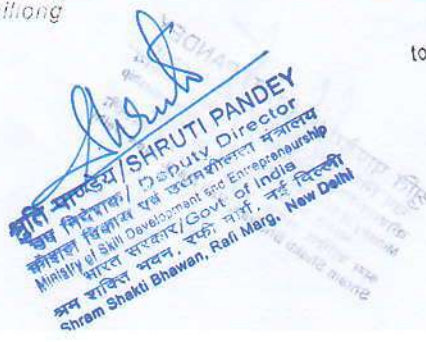 to
Shruti
श्रुति पाण्डेय/SHRUTI PANDEY
उप निदेशक/ Deputy Director
कौशल विकास एवं उद्यमशीलता मंत्रालय
Ministry of Skill Development and Entrepreneurship
भारत सरकार/Govt. of India
श्रम शक्ति भवन, रफी मार्ग, नई दिल्ली
Shram Shakti Bhawan, Rafi Marg, New Delhi